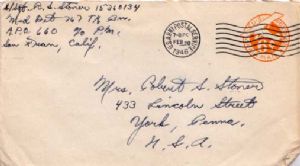 S/Sgt. R. S. Stoner 15360134
Med Det 767 FA Bn.
A.P.O. 660 % P.M.
San Fran, Calif.
U.S. ARMY POSTAL SERVICE
FEB 20
1946
Mrs. Robert S. Stoner
433 Lincoln Street
York, Penna.
U.S.A.